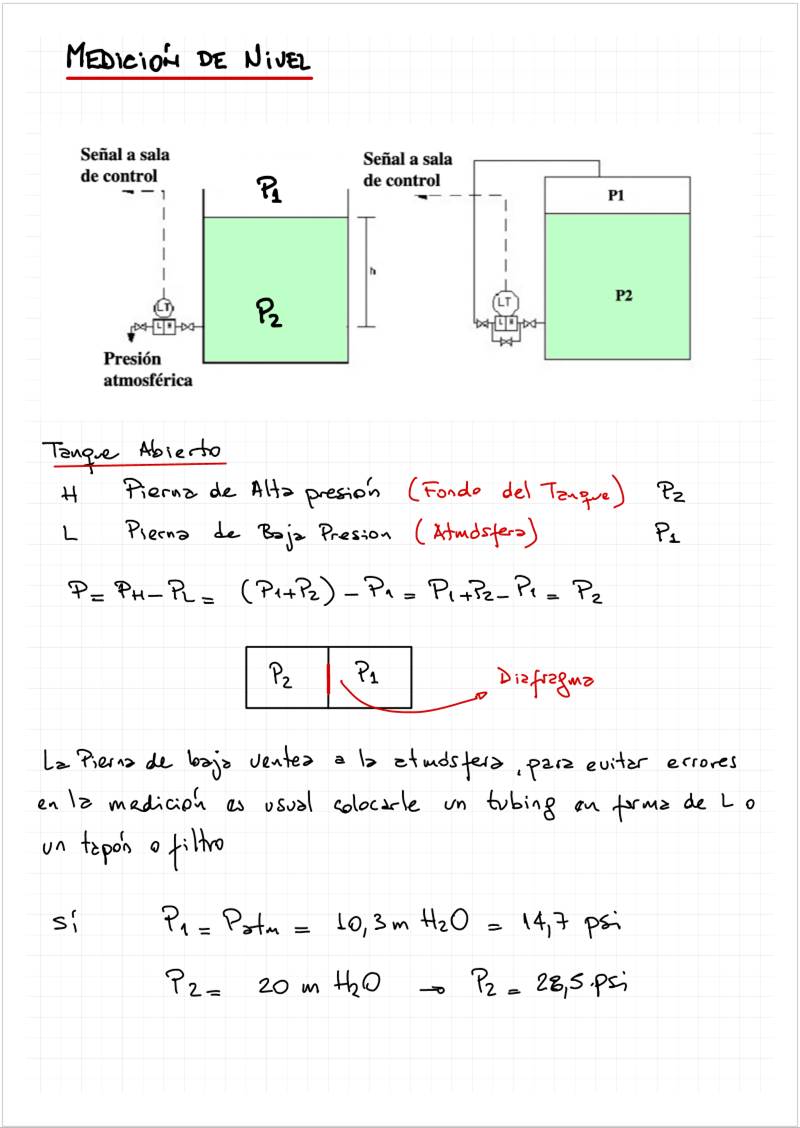 MEDICIÓN DE NIVEL
Señal a sala
de control
P1
h
P2
LT
L H
Presión
atmosférica
Señal a sala
de control
P1
P2
LT
L H
Tanque Abierto
H Pierna de Alta presión (Fondo del Tanque) P2
L Pierna de Baja Presion (Atmósfera) P1
P = PH - PL = (P1+P2) - P1 = P1+P2 - P1 = P2
P2 P1 Diafragma
La Pierna de baja ventea a la atmósfera, para evitar errores
en la medición es usual colocarle un tubing en forma de L o
un tapón o filtro
Sí P1 = Patm = 10,3 m H2O = 14,7 psi
P2 = 20 m H2O → P2 = 28,5 psi